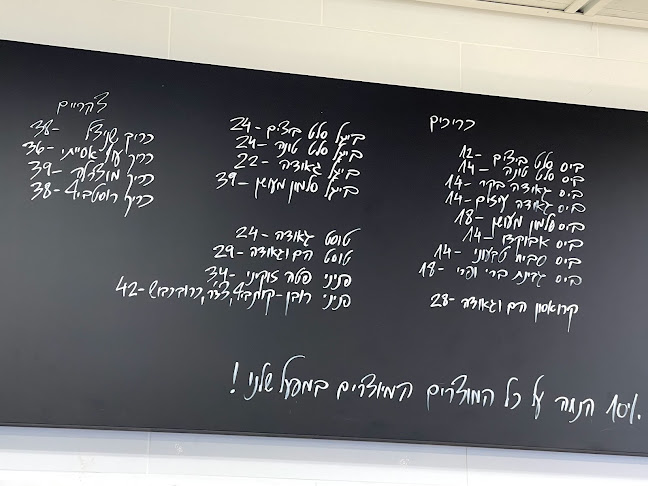 כריכים
ביס סלט ביצים - 12
ביס סלט טונה - 14
ביס גאודה בקר - 14
ביס גאודה עיזים - 14
ביס סלמון מעושן - 18
ביס אבוקדו - 14
ביס סביח טבעוני - 14
ביס גבינת ברי ופרי - 18
קרואסון הם וגאודה - 28
בייגל סלט ביצים - 24
בייגל סלט טונה - 24
בייגל גאודה - 22
בייגל סלמון מעושן - 39
טוסט גאודה - 24
טוסט הם וגאודה - 29
פניני פטה זוקיני - 34
פניני רובן - רוסטביף, צ'דר, כרוב כבוש - 42
צהריים
כריך שניצל - 38
כריך עוף אסייתי - 36
כריך מוצרלה - 39
כריך רוסטביף - 38
10% הנחה על כל המוצרים המיוצרים במפעל שלנו!